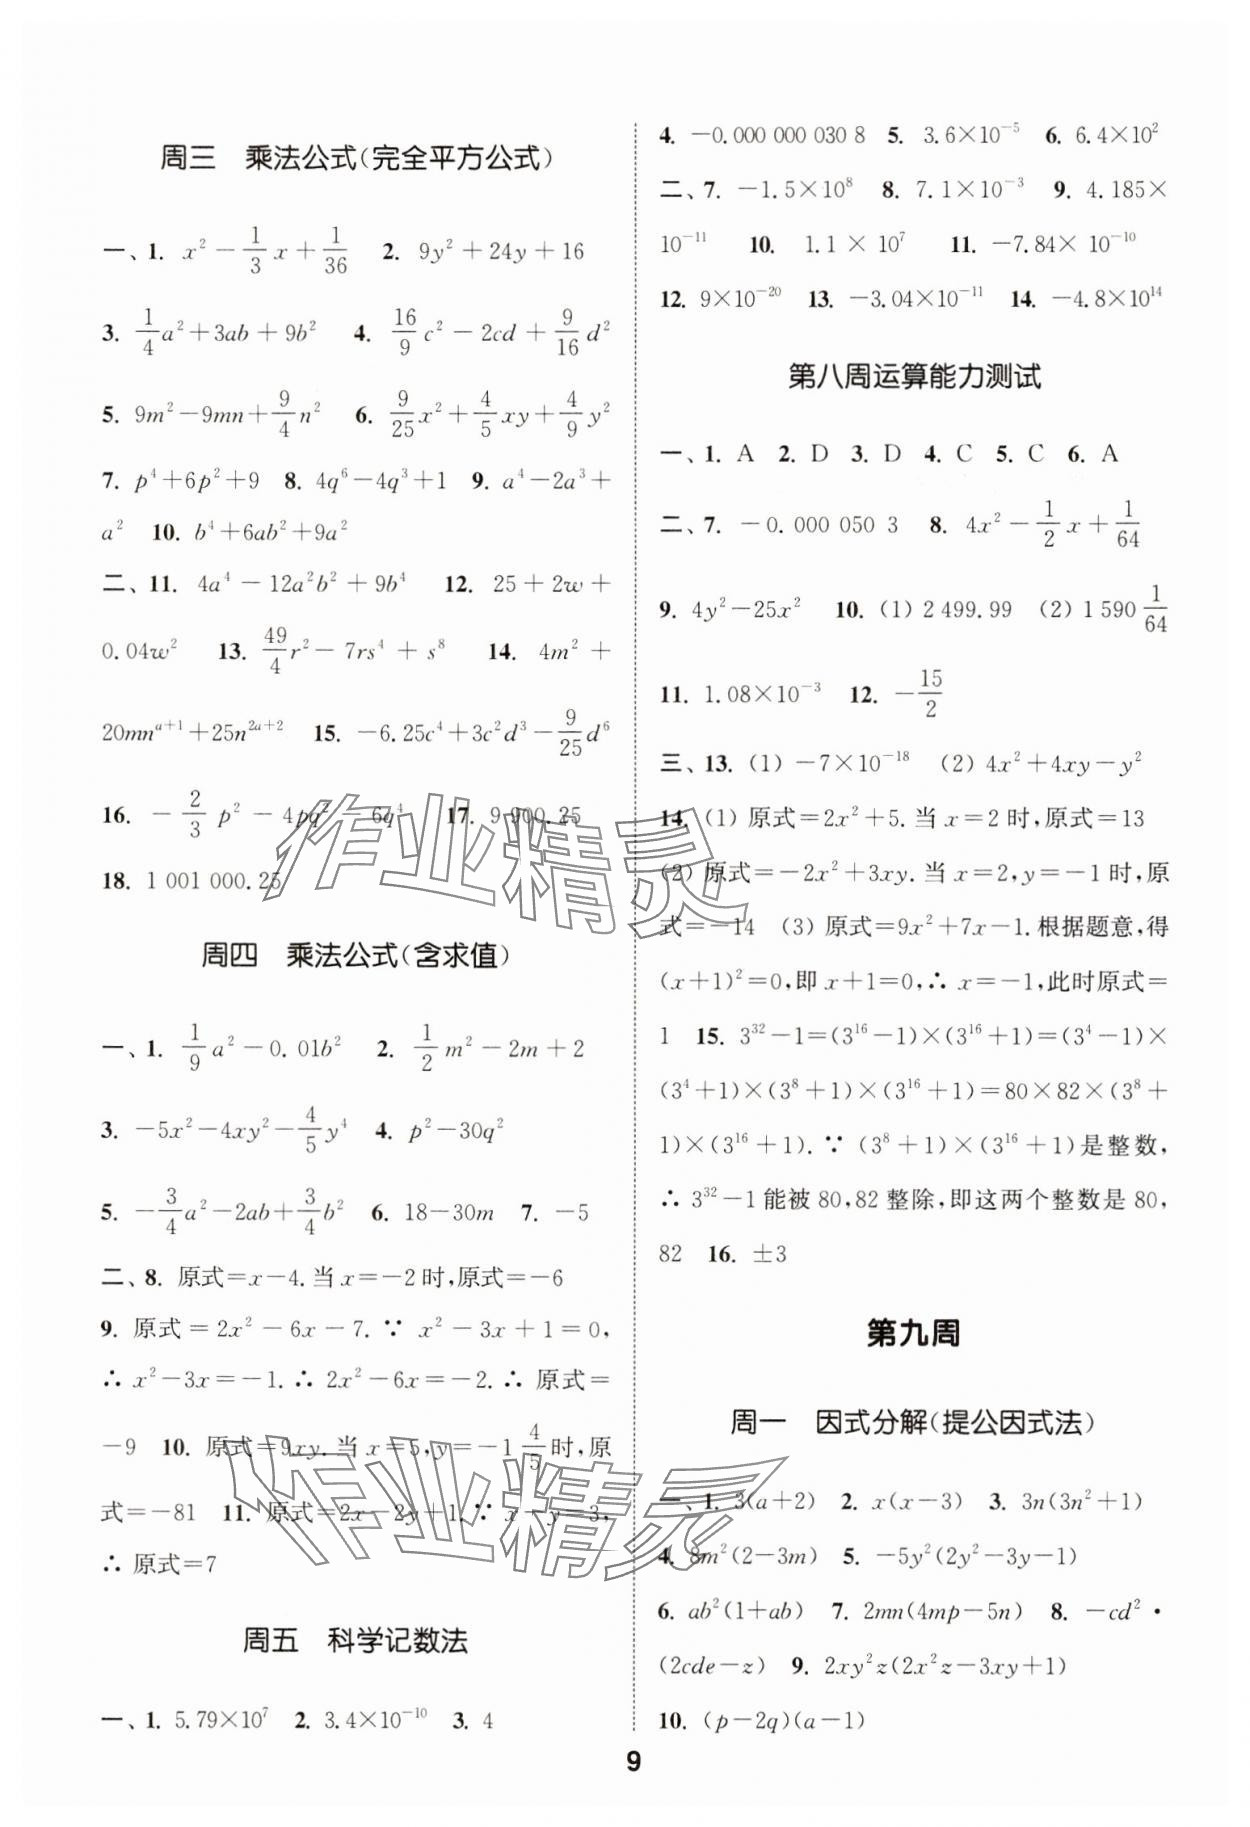 周三 乘法公式(完全平方公式)
一、1. x² − 1/3 x + 1/36 2. 9y² + 24y + 16
3. 1/4 a² + 3ab + 9b² 4. 16/9 c² − 2cd + 9/16 d²
5. 9m² − 9mn + 9/4 n² 6. 9/25 x² + 4/5 xy + 4/9 y²
7. p⁴ + 6p² + 9 8. 4q⁶ − 4q³ + 1 9. a⁴ − 2a³ +
a² 10. b⁴ + 6ab² + 9a²
二、11. 4a⁴ − 12a²b² + 9b⁴ 12. 25 + 2w +
0.04w² 13. 49/4 r² − 7rs⁴ + s⁸ 14. 4m² +
20mnᵃ⁺¹ + 25n²ᵃ⁺² 15. −6.25c⁴ + 3c²d³ − 9/25 d⁶
16. − 2/3 p² − 4pq² − 6q⁴ 17. 9 900.25
18. 1 001 000.25
周四 乘法公式(含求值)
一、1. 1/9 a² − 0.01b² 2. 1/2 m² − 2m + 2
3. −5x² − 4xy² − 4/5 y⁴ 4. p² − 30q²
5. − 3/4 a² − 2ab + 3/4 b² 6. 18 − 30m 7. −5
二、8. 原式=x−4.当 x=−2 时,原式=−6
9. 原式 = 2x² − 6x − 7. ∵ x² − 3x + 1 = 0,
∴ x² − 3x = −1. ∴ 2x² − 6x = −2. ∴ 原式 =
−9 10. 原式=9xy.当 x=5,y=−1 4/5 时,原
式=−81 11. 原式=2x−2y+1.∵ x−y=3,
∴ 原式=7
周五 科学记数法
一、1. 5.79×10⁷ 2. 3.4×10⁻¹⁰ 3. 4
4. −0.000 000 030 8 5. 3.6×10⁻⁵ 6. 6.4×10²
二、7. −1.5×10⁸ 8. 7.1×10⁻³ 9. 4.185×
10⁻¹¹ 10. 1.1 × 10⁷ 11. −7.84× 10⁻¹⁰
12. 9×10⁻²⁰ 13. −3.04×10⁻¹¹ 14. −4.8×10¹⁴
第八周运算能力测试
一、1. A 2. D 3. D 4. C 5. C 6. A
二、7. −0.000 050 3 8. 4x² − 1/2 x + 1/64
9. 4y² − 25x² 10. (1) 2 499.99 (2) 1 590 1/64
11. 1.08×10⁻³ 12. − 15/2
三、13. (1) −7×10⁻¹⁸ (2) 4x² + 4xy − y²
14. (1) 原式=2x²+5.当 x=2 时,原式=13
(2) 原式=−2x²+3xy.当 x=2,y=−1 时,原
式=−14 (3) 原式=9x²+7x−1.根据题意,得
(x+1)²=0,即 x+1=0,∴ x=−1,此时原式=
1 15. 3³²−1=(3¹⁶−1)×(3¹⁶+1)=(3⁴−1)×
(3⁴+1)×(3⁸+1)×(3¹⁶+1)=80×82×(3⁸+
1)×(3¹⁶+1).∵ (3⁸+1)×(3¹⁶+1)是整数,
∴ 3³²−1能被 80,82 整除,即这两个整数是 80,
82 16. ±3
第九周
周一 因式分解(提公因式法)
一、1. 3(a+2) 2. x(x−3) 3. 3n(3n²+1)
4. 8m²(2−3m) 5. −5y²(2y²−3y−1)
6. ab²(1+ab) 7. 2mn(4mp−5n) 8. −cd²·
(2cde−z) 9. 2xy²z(2x²z−3xy+1)
10. (p−2q)(a−1)
9
作业精灵
作业精灵